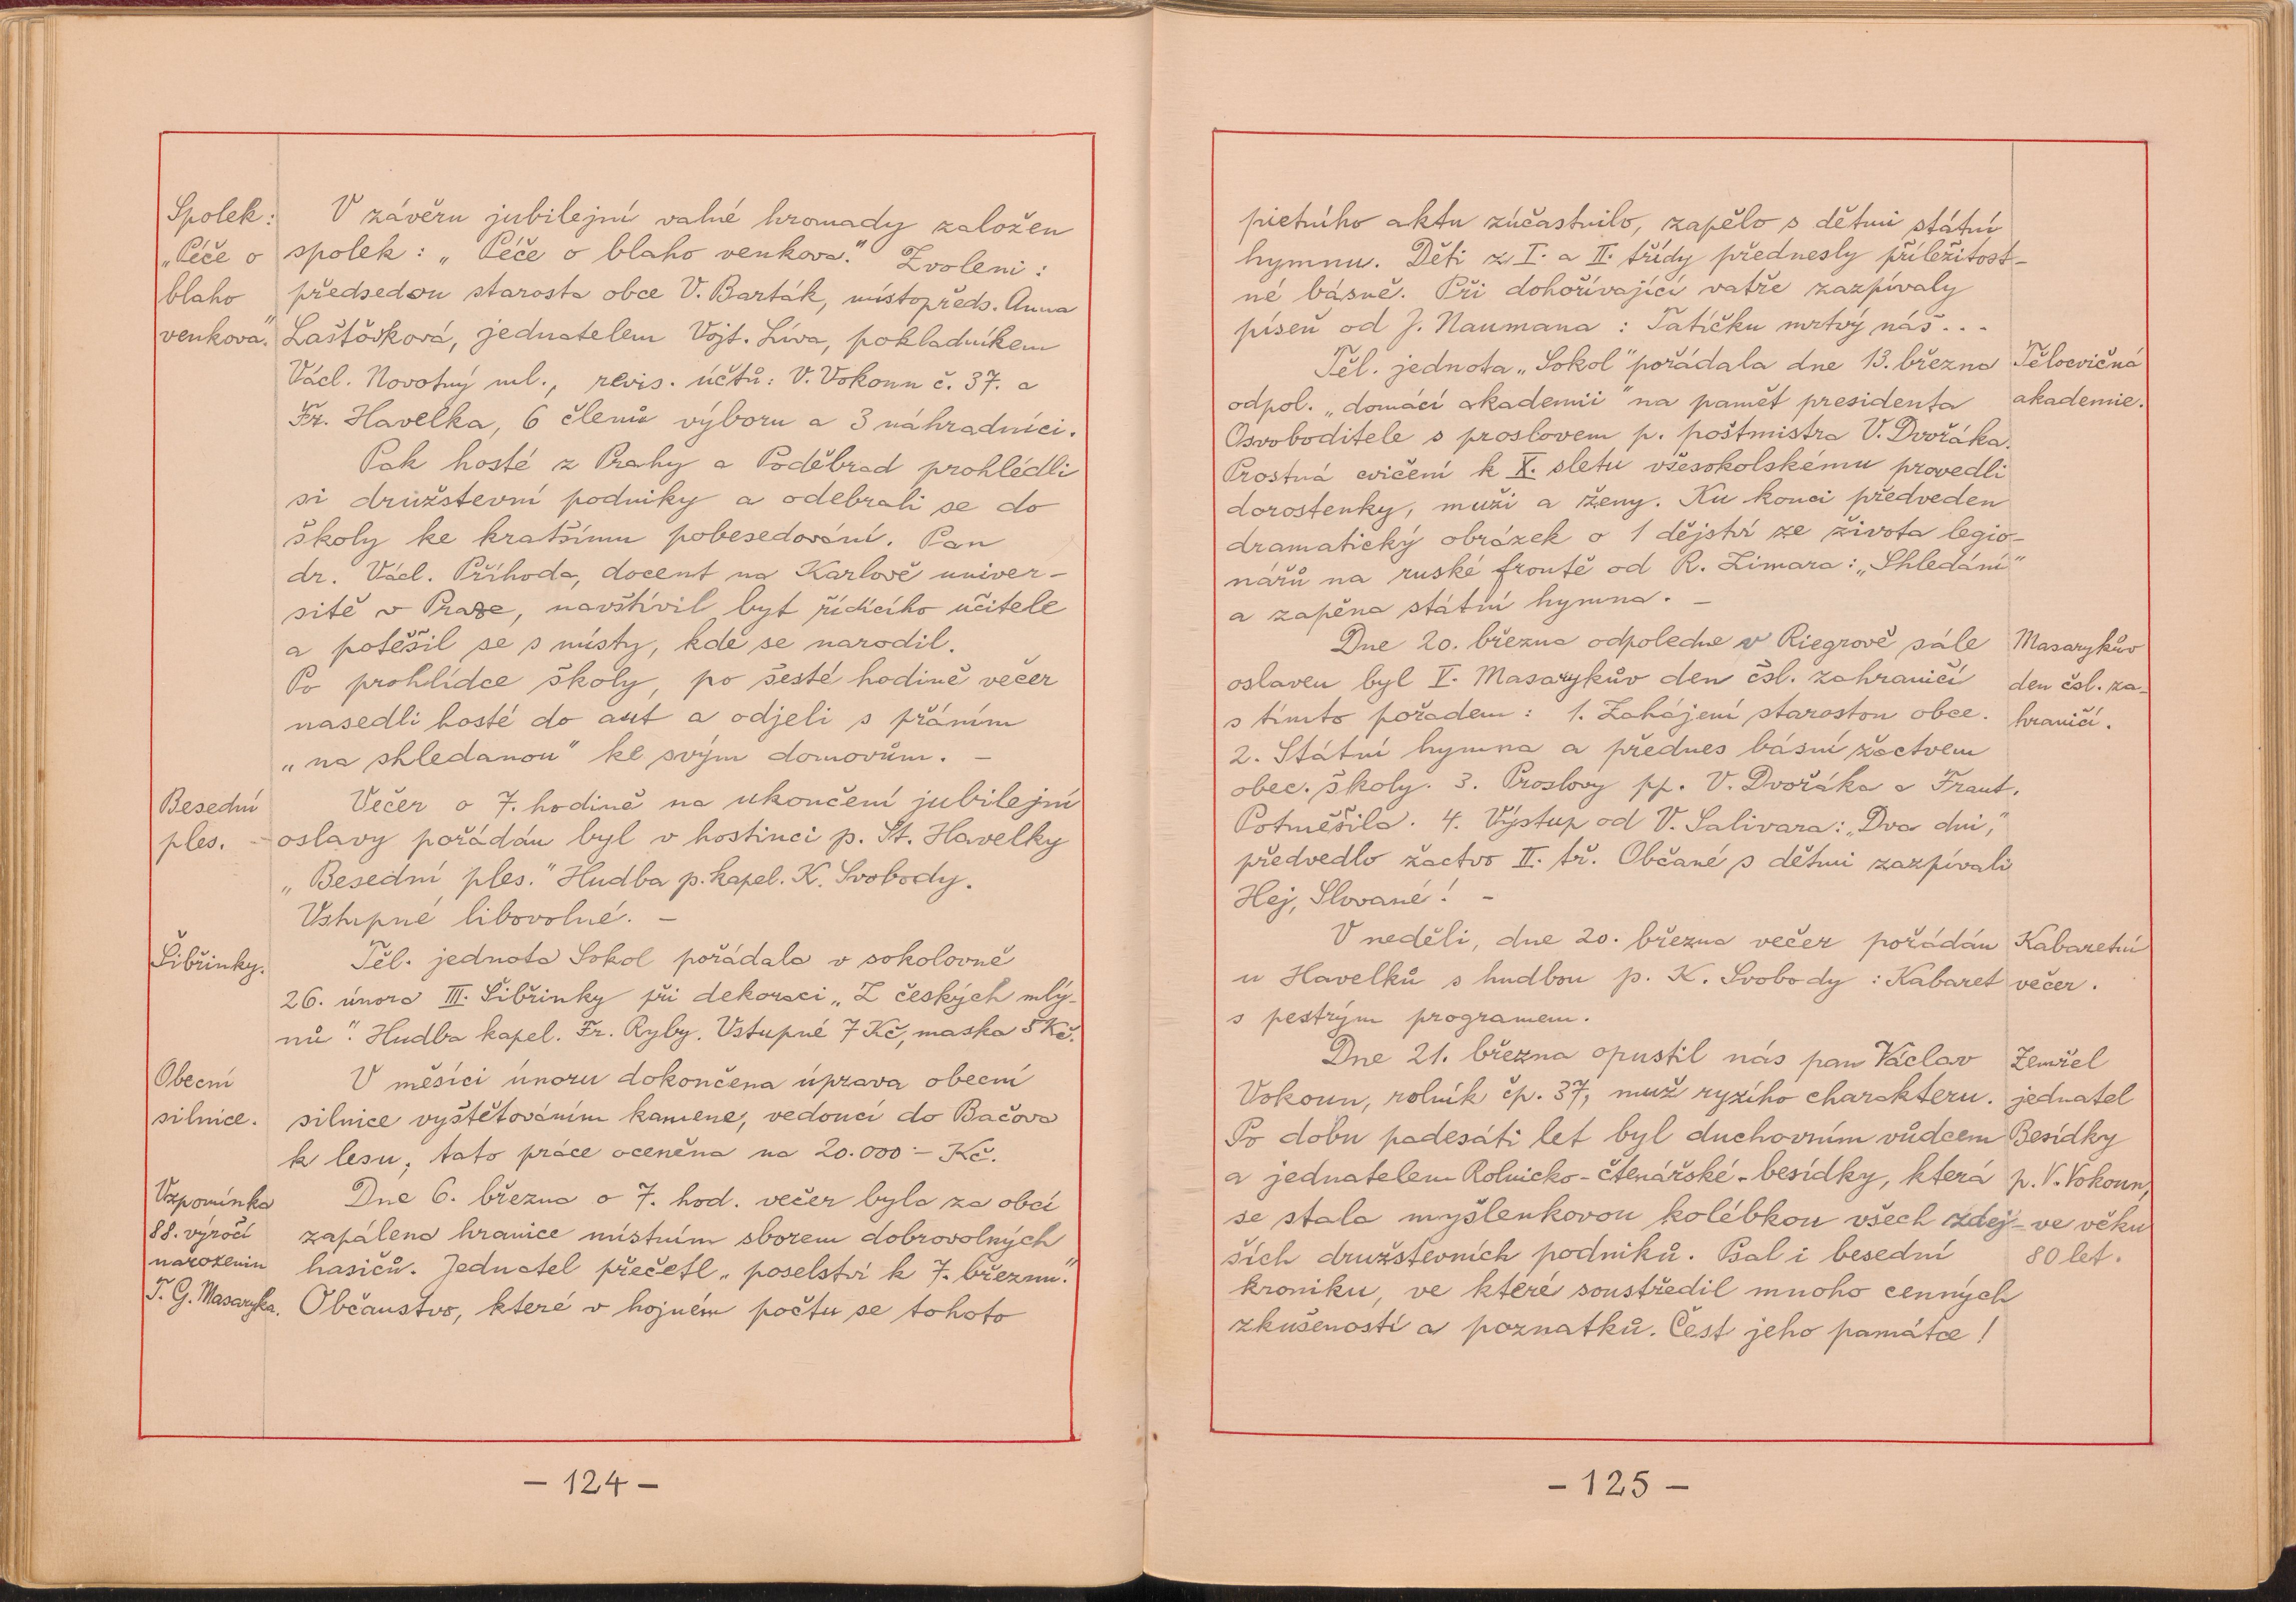 Spolek:
„Péče o
blaho
venkova."
V závěru jubilejní valné hromady založen
spolek: „Péče o blaho venkova." Zvoleni:
předsedou starosta obce V. Barták, místopředs. Anna
Laštůvková, jednatelem Vojt. Líva, pokladníkem
Václ. Novotný ml., revis. účtů: V. Vokoun č. 37. a
Fr. Havelka, 6 členů výboru a 3 náhradníci.
Pak hosté z Prahy a Poděbrad prohlédli
si družstevní podniky a odebrali se do
školy ke kratšímu pobesedování. Pan
dr. Václ. Příhoda, docent na Karlově univer-
sitě v Praze, navštívil byt řídícího učitele
a potěšil se s místy, kde se narodil.
Po prohlídce školy, po šesté hodině večer
nasedli hosté do aut a odjeli s přáním
„na shledanou" ke svým domovům. –
Besední
ples. –
Večer o 7. hodině na ukončení jubilejní
oslavy pořádán byl v hostinci p. St. Havelky
„Besední ples." Hudba p. kapel. K. Svobody.
Vstupné libovolné. –
Šibřinky.
Těl. jednota Sokol pořádala v sokolovně
26. února III. Šibřinky při dekoraci „Z českých mlý-
nů". Hudba kapel. Fr. Ryby. Vstupné 7 Kč, maska 5 Kč.
Obecní
silnice.
V měsíci únoru dokončena úprava obecní
silnice vyštětováním kamene, vedoucí do Bačova
k lesu, tato práce oceněna na 20.000 – Kč.
Vzpomínka
88. výročí
narozenin
T. G. Masaryka.
Dne 6. března o 7. hod. večer byla za obcí
zapálena hranice místním sborem dobrovolných
hasičů. Jednatel přečetl „poselství k 7. březnu."
Občanstvo, které v hojném počtu se tohoto
– 124 –
pietního aktu zúčastnilo, zapělo s dětmi státní
hymnu. Děti z I. a II. třídy přednesly příležitost-
né básně. Při dohořívající vatře zazpívaly
píseň od J. Naumana: Tatíčku mrtvý náš...
Těl. jednota „Sokol" pořádala dne 13. března
odpol. „domácí akademii" na paměť presidenta
Osvoboditele s proslovem p. poštmistra V. Dvořáka.
Prostná cvičení k X. sletu všesokolskému provedli
dorostenky, muži a ženy. Ku konci předveden
dramatický obrázek o 1 dějství ze života legio-
nářů na ruské frontě od R. Zimara: „Shledání"
a zapěna státní hymna. –
Tělocvičná
akademie.
Dne 20. března odpoledne v Riegrově sále
oslaven byl V. Masarykův den čsl. zahraničí
s tímto pořadem: 1. Zahájení starostou obce.
2. Státní hymna a přednes básní žactvem
obec. školy. 3. Proslovy pp. V. Dvořáka a Frant.
Potměšila. 4. Výstup od V. Salivara: „Dva dni,"
předvedlo žactvo II. tř. Občané s dětmi zazpívali
Hej, Slované! –
Masarykův
den čsl. za-
hraničí.
V neděli, dne 20. března večer pořádán
u Havelků s hudbou p. K. Svobody: Kabaret
s pestrým programem.
Kabaretní
večer.
Dne 21. března opustil nás pan Václav
Vokoun, rolník čp. 37, muž ryzího charakteru.
Po dobu padesáti let byl duchovním vůdcem
a jednatelem Rolnicko-čtenářské-besídky, která
se stala myšlenkovou kolébkou všech zdej-
ších družstevních podniků. Psal i besední
kroniku, ve které soustředil mnoho cenných
zkušeností a poznatků. Čest jeho památce!
Zemřel
jednatel
Besídky
p. V. Vokoun,
ve věku
80 let.
– 125 –